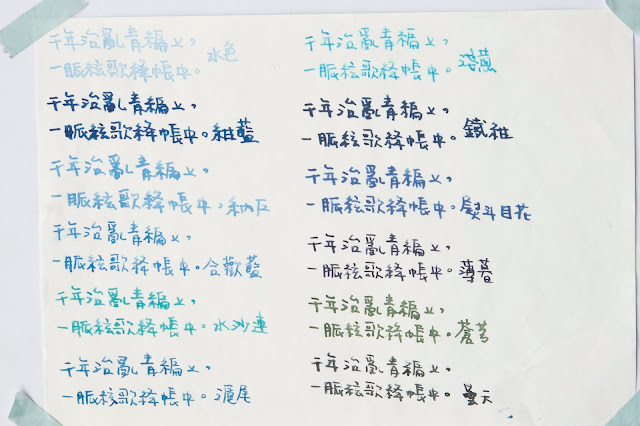 千年治亂青編上,
一脈絃歌絳帳中。水色
千年治亂青編上,
一脈絃歌絳帳中。紺藍
千年治亂青編上,
一脈絃歌絳帳中。
千年治亂青編上,
一脈絃歌絳帳中。合歡藍
千年治亂青編上,
一脈絃歌絳帳中。水沙連
千年治亂青編上,
一脈絃歌絳帳中。滬尾
千年治亂青編上,
一脈絃歌絳帳中。
千年治亂青編上,
一脈絃歌絳帳中。鐵紺
千年治亂青編上,
一脈絃歌絳帳中。熨斗目花
千年治亂青編上,
一脈絃歌絳帳中。薄暮
千年治亂青編上,
一脈絃歌絳帳中。蒼
千年治亂青編上,
一脈絃歌絳帳中。曇天